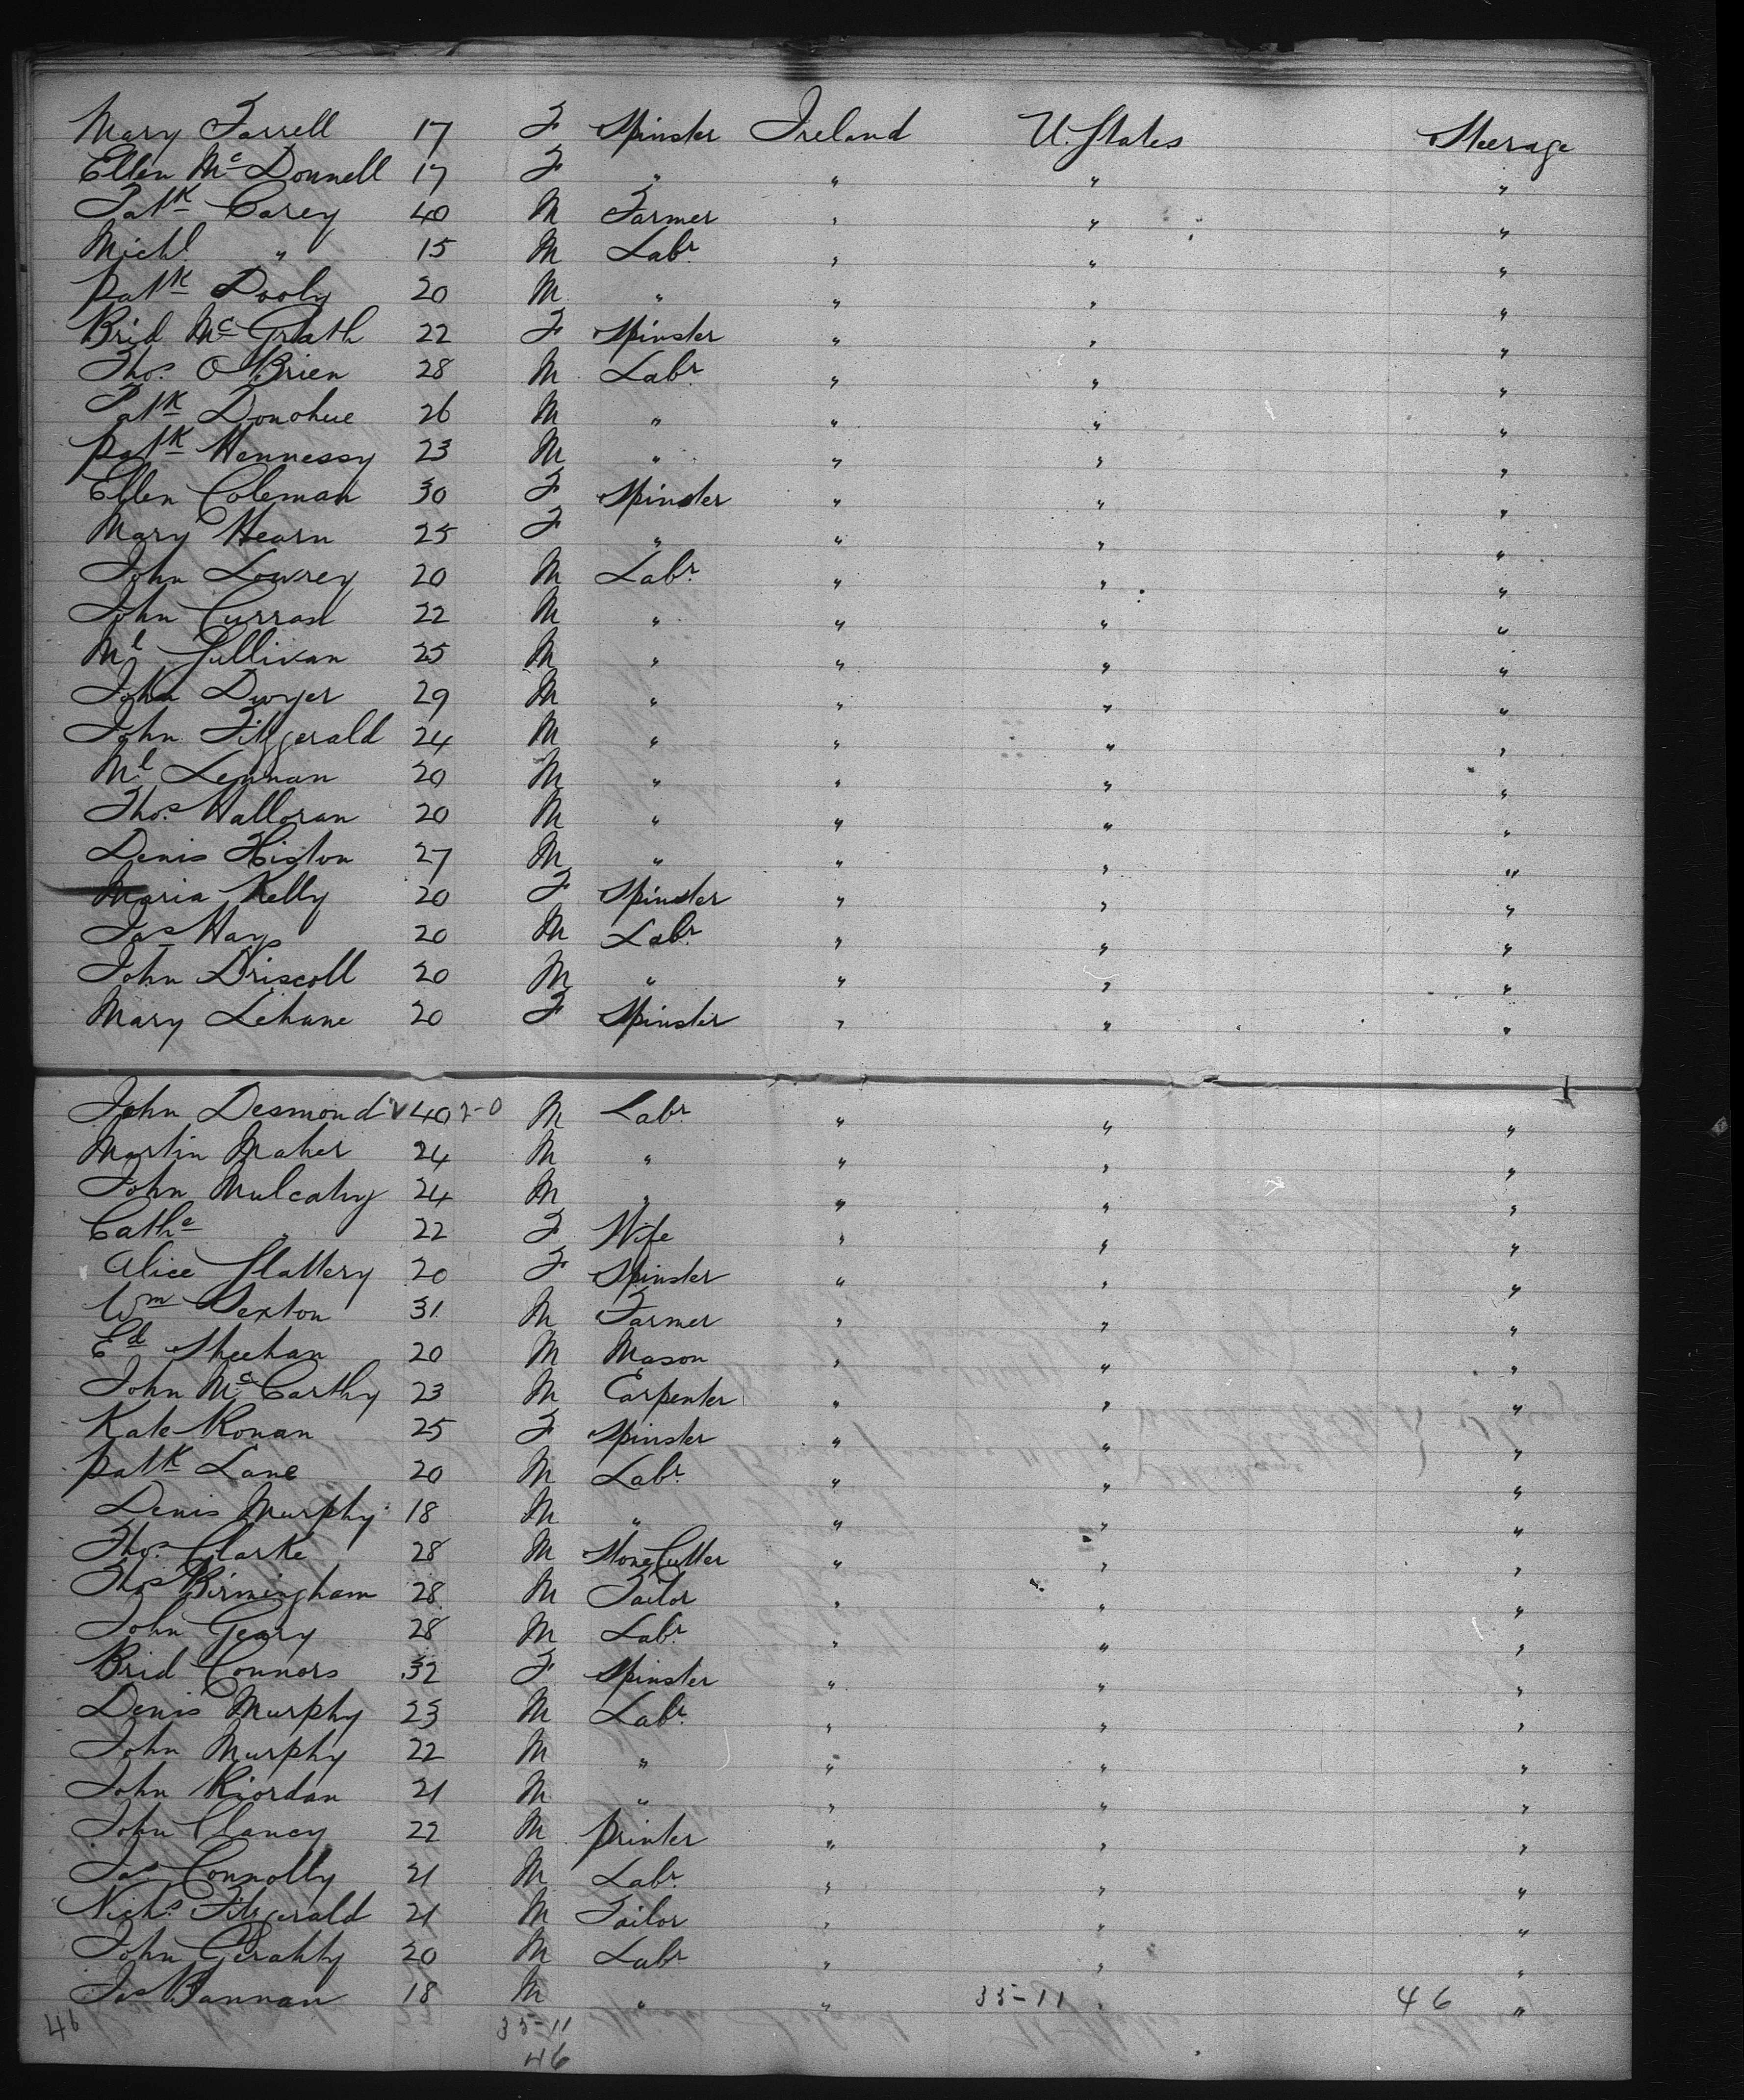 Mary Farrell 17 F Spinster Ireland U. States Steerage
Ellen Mc Donnell 17 F " " " "
Patk Carey 40 M Farmer " " "
Michl " 15 M Labr " " "
Patk Dooly 20 M " " " "
Brid Mc Grath 22 F Spinster " " "
Thos. O Brien 28 M Labr " " "
Patk Donohue 26 M " " " "
Patk Hennessy 23 M " " " "
Ellen Coleman 30 F Spinster " " "
Mary Hearn 25 F " " " "
John Lowrey 20 M Labr " " "
John Curran 22 M " " " "
Ml Sullivan 25 M " " " "
John Dwyer 29 M " " " "
John Fitzgerald 24 M " " " "
Ml Lennan 20 M " " " "
Thos. Halloran 20 M " " " "
Denis Histon 27 M " " " "
Maria Kelly 20 F Spinster " " "
Jas Hays 20 M Labr " " "
John Driscoll 20 M " " " "
Mary Lehane 20 F Spinster " " "
John Desmond √ 40 2-0 M Labr " " "
Martin Maher 24 M " " " "
John Mulcahy 24 M " " " "
Cathe " 22 F Wife " " "
Alice Slattery 20 F Spinster " " "
Wm Sexton 31 M Farmer " " "
Ed Sheehan 20 M Mason " " "
John Mc Carthy 23 M Carpenter " " "
Kate Ronan 25 F Spinster " " "
Patk Lane 20 M Labr " " "
Denis Murphy 18 M " " " "
Thos. Clarke 28 M Stone Cutter " " "
Thos Birmingham 28 M Tailor " " "
John Geary 28 M Labr " " "
Brid Connors 32 F Spinster " " "
Denis Murphy 23 M Labr " " "
John Murphy 22 M " " " "
John Riordan 21 M " " " "
John Clancy 22 M Printer " " "
Jas Connolly 21 M Labr " " "
Nichs. Fitzgerald 21 M Tailor " " "
John Gerahty 20 M Labr " " "
Jas Bannan 18 M " " 35-11 " 46 "
46 35-11
46